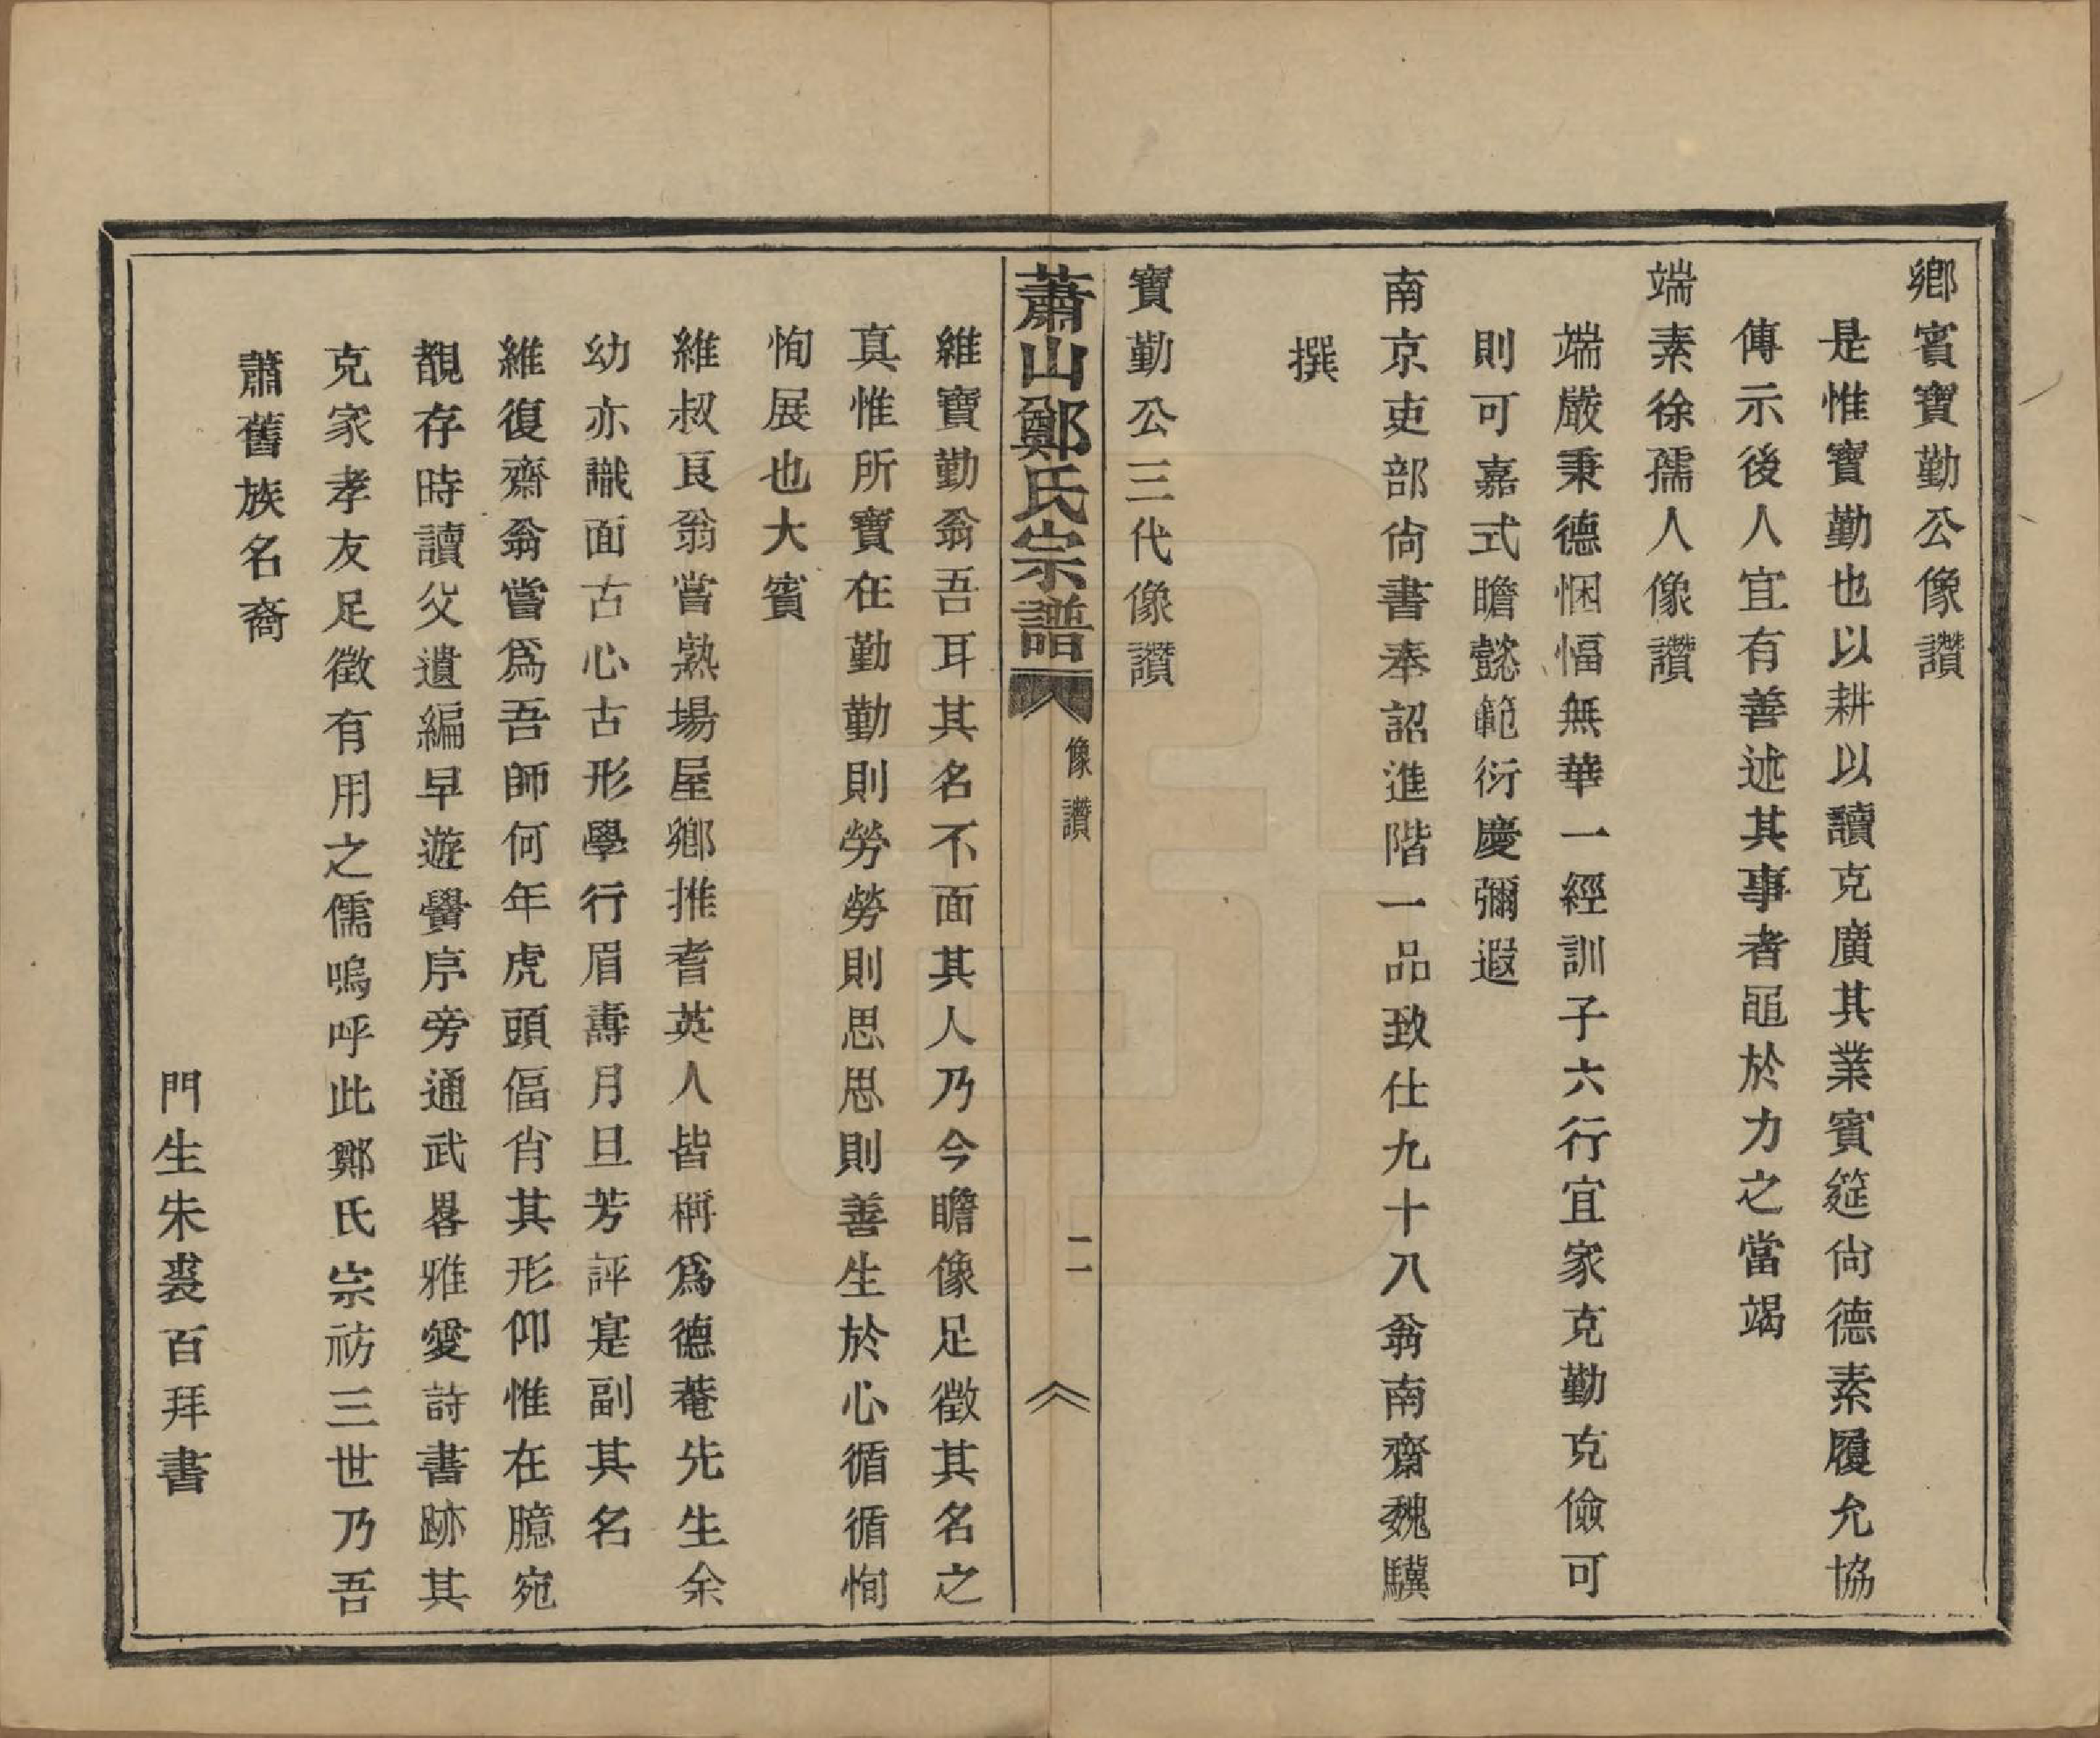 鄉賓寶勤公像讚
是惟寶勤也以耕以讀克廣其業賓筵尙德素履允協
傳示後人宜有善述其事者黽於力之當竭
端素徐孺人像讚
端嚴秉德悃愊無華一經訓子六行宜家克勤克儉可
則可嘉式瞻懿範衍慶彌遐
南京吏部尙書奉詔進階一品致仕九十八翁南齋魏驥
撰
寶勤公三代像讚
蕭山鄭氏宗譜
像讚
二
維寶勤翁吾耳其名不面其人乃今瞻像足徵其名之
真惟所寶在勤勤則勞勞則思思則善生於心循循恂
恂展也大賓
維叔良翁嘗熟場屋鄉推耆英人皆稱爲德菴先生余
幼亦識面古心古形學行眉壽月旦芳評寔副其名
維復齋翁嘗爲吾師何年虎頭偪肖其形仰惟在臆宛
覩存時讀父遺編早遊黌序旁通武畧雅愛詩書跡其
克家孝友足徵有用之儒嗚呼此鄭氏崇祊三世乃吾
蕭舊族名裔
門生朱裘百拜書